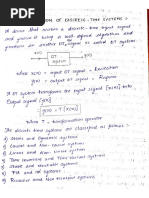 ION OF DISCRETE - TIME SYSTEMS :-
A device that convert a discrete time input signal
and process it using a well defined algorithm and
produces an another DT signal is called DT system.
x(n)
DT
System
y(n)
where x(n) - input DT signal - Excitation
y(n) - Output DT signal - Response
A DT system transforms the input signal x(n) into
Output signal (y(n))
y(n) = T [x(n)]
where, T - transformation operator
The discrete time systems are classified as follows :-
a) Static and Dynamic systems
b) Causal and Non-causal systems
c) Linear and Non linear system
d) Time invariant and Time variant systems
e) Stable and Unstable systems
f) FIR and IIR systems
g) Recursive and Non recursive systems